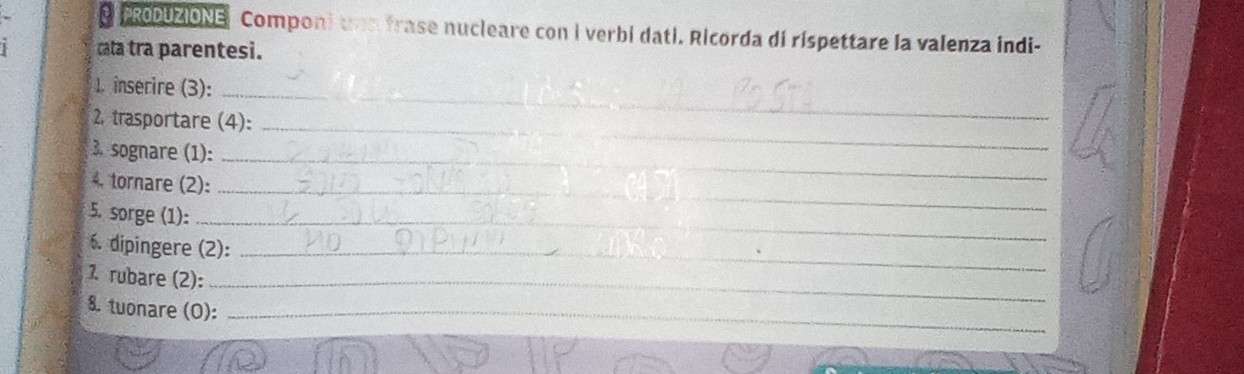 9 PRODUZIONE Componi una frase nucleare con i verbi dati. Ricorda di rispettare la valenza indi-
cata tra parentesi.
1. inserire (3): POSTA
2. trasportare (4):
3. sognare (1):
4. tornare (2): SONO A CASA
5. sorge (1):
6. dipingere (2): HO
7. rubare (2):
8. tuonare (0):